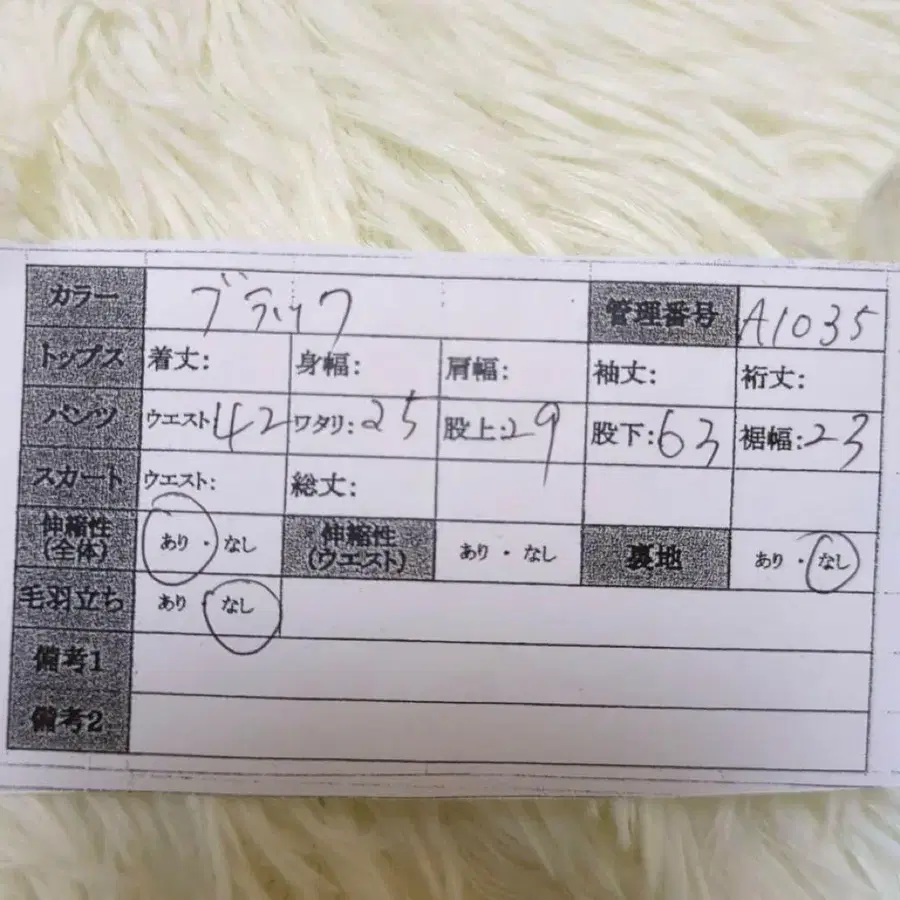 カラー ブラック 管理番号 A1035
トップス 着丈: 身幅: 肩幅: 袖丈: 裄丈:
パンツ ウエスト 42 ワタリ: 25 股上: 29 股下: 63 裾幅: 23
スカート ウエスト: 総丈:
伸縮性 (全体) あり ・ なし 伸縮性 (ウエスト) あり ・ なし 裏地 あり ・ なし
毛羽立ち あり ・ なし
備考1
備考2